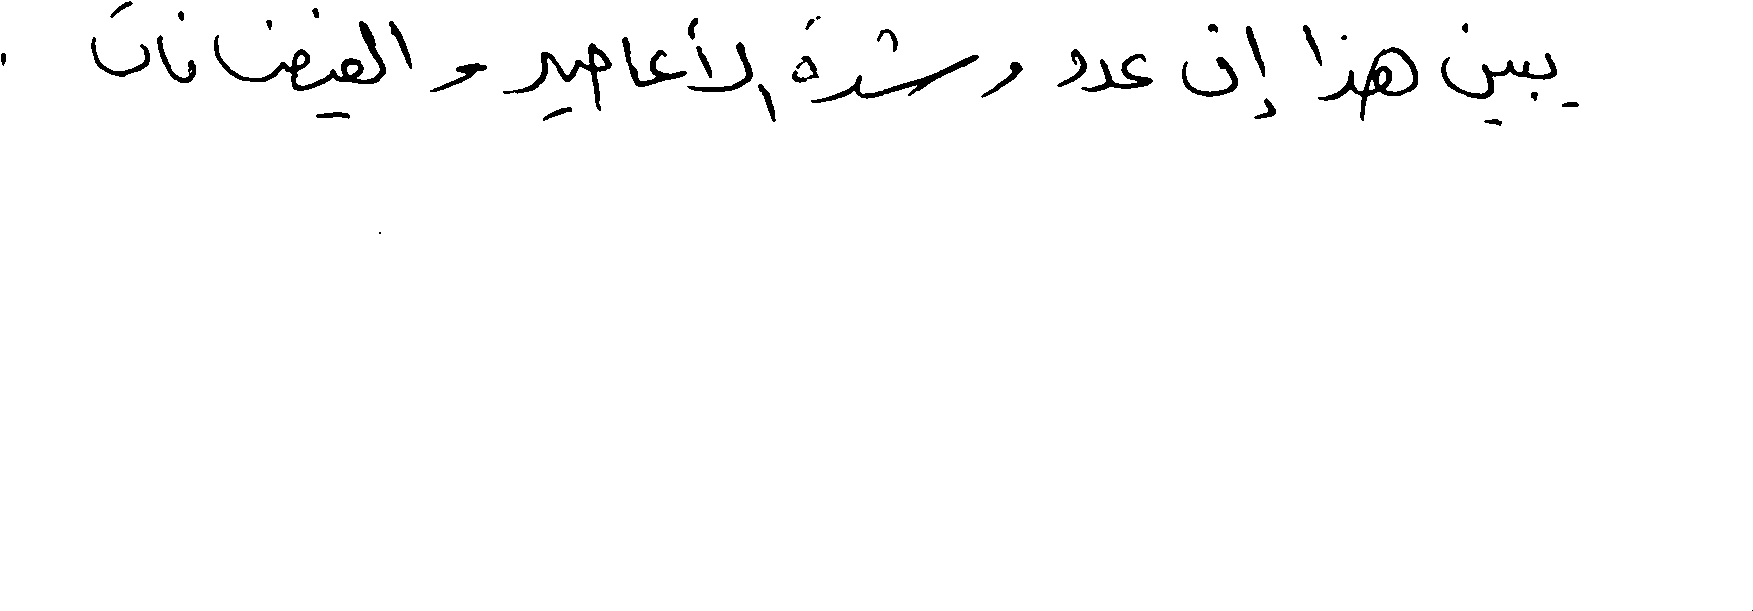 يبين هذا إن عدد وشدة الأعاصير والفيضانات .